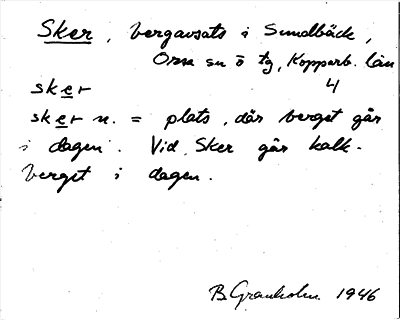 Sker, bergavsats i Sundbäck,
Orsa sn ö tg, Kopparb. län
4
sker
sker n. = plats, där berget går
i dagen. Vid Sker går kalk-
berget i dagen.
B. Granholm 1946